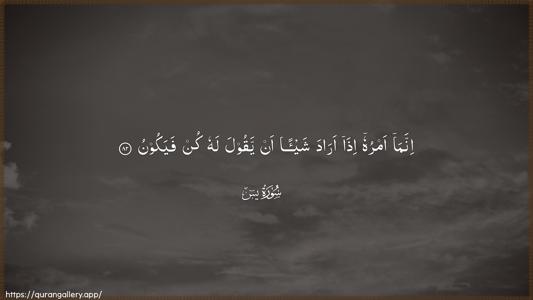 اِنَّمَاۤ اَمْرُهٗۤ اِذَاۤ اَرَادَ شَيْـًٔـا اَنْ يَّقُوْلَ لَهٗ كُنْ فَيَكُوْنُ ۝٨٢
سُوْرَةُ يٰسٓ
https://qurangallery.app/